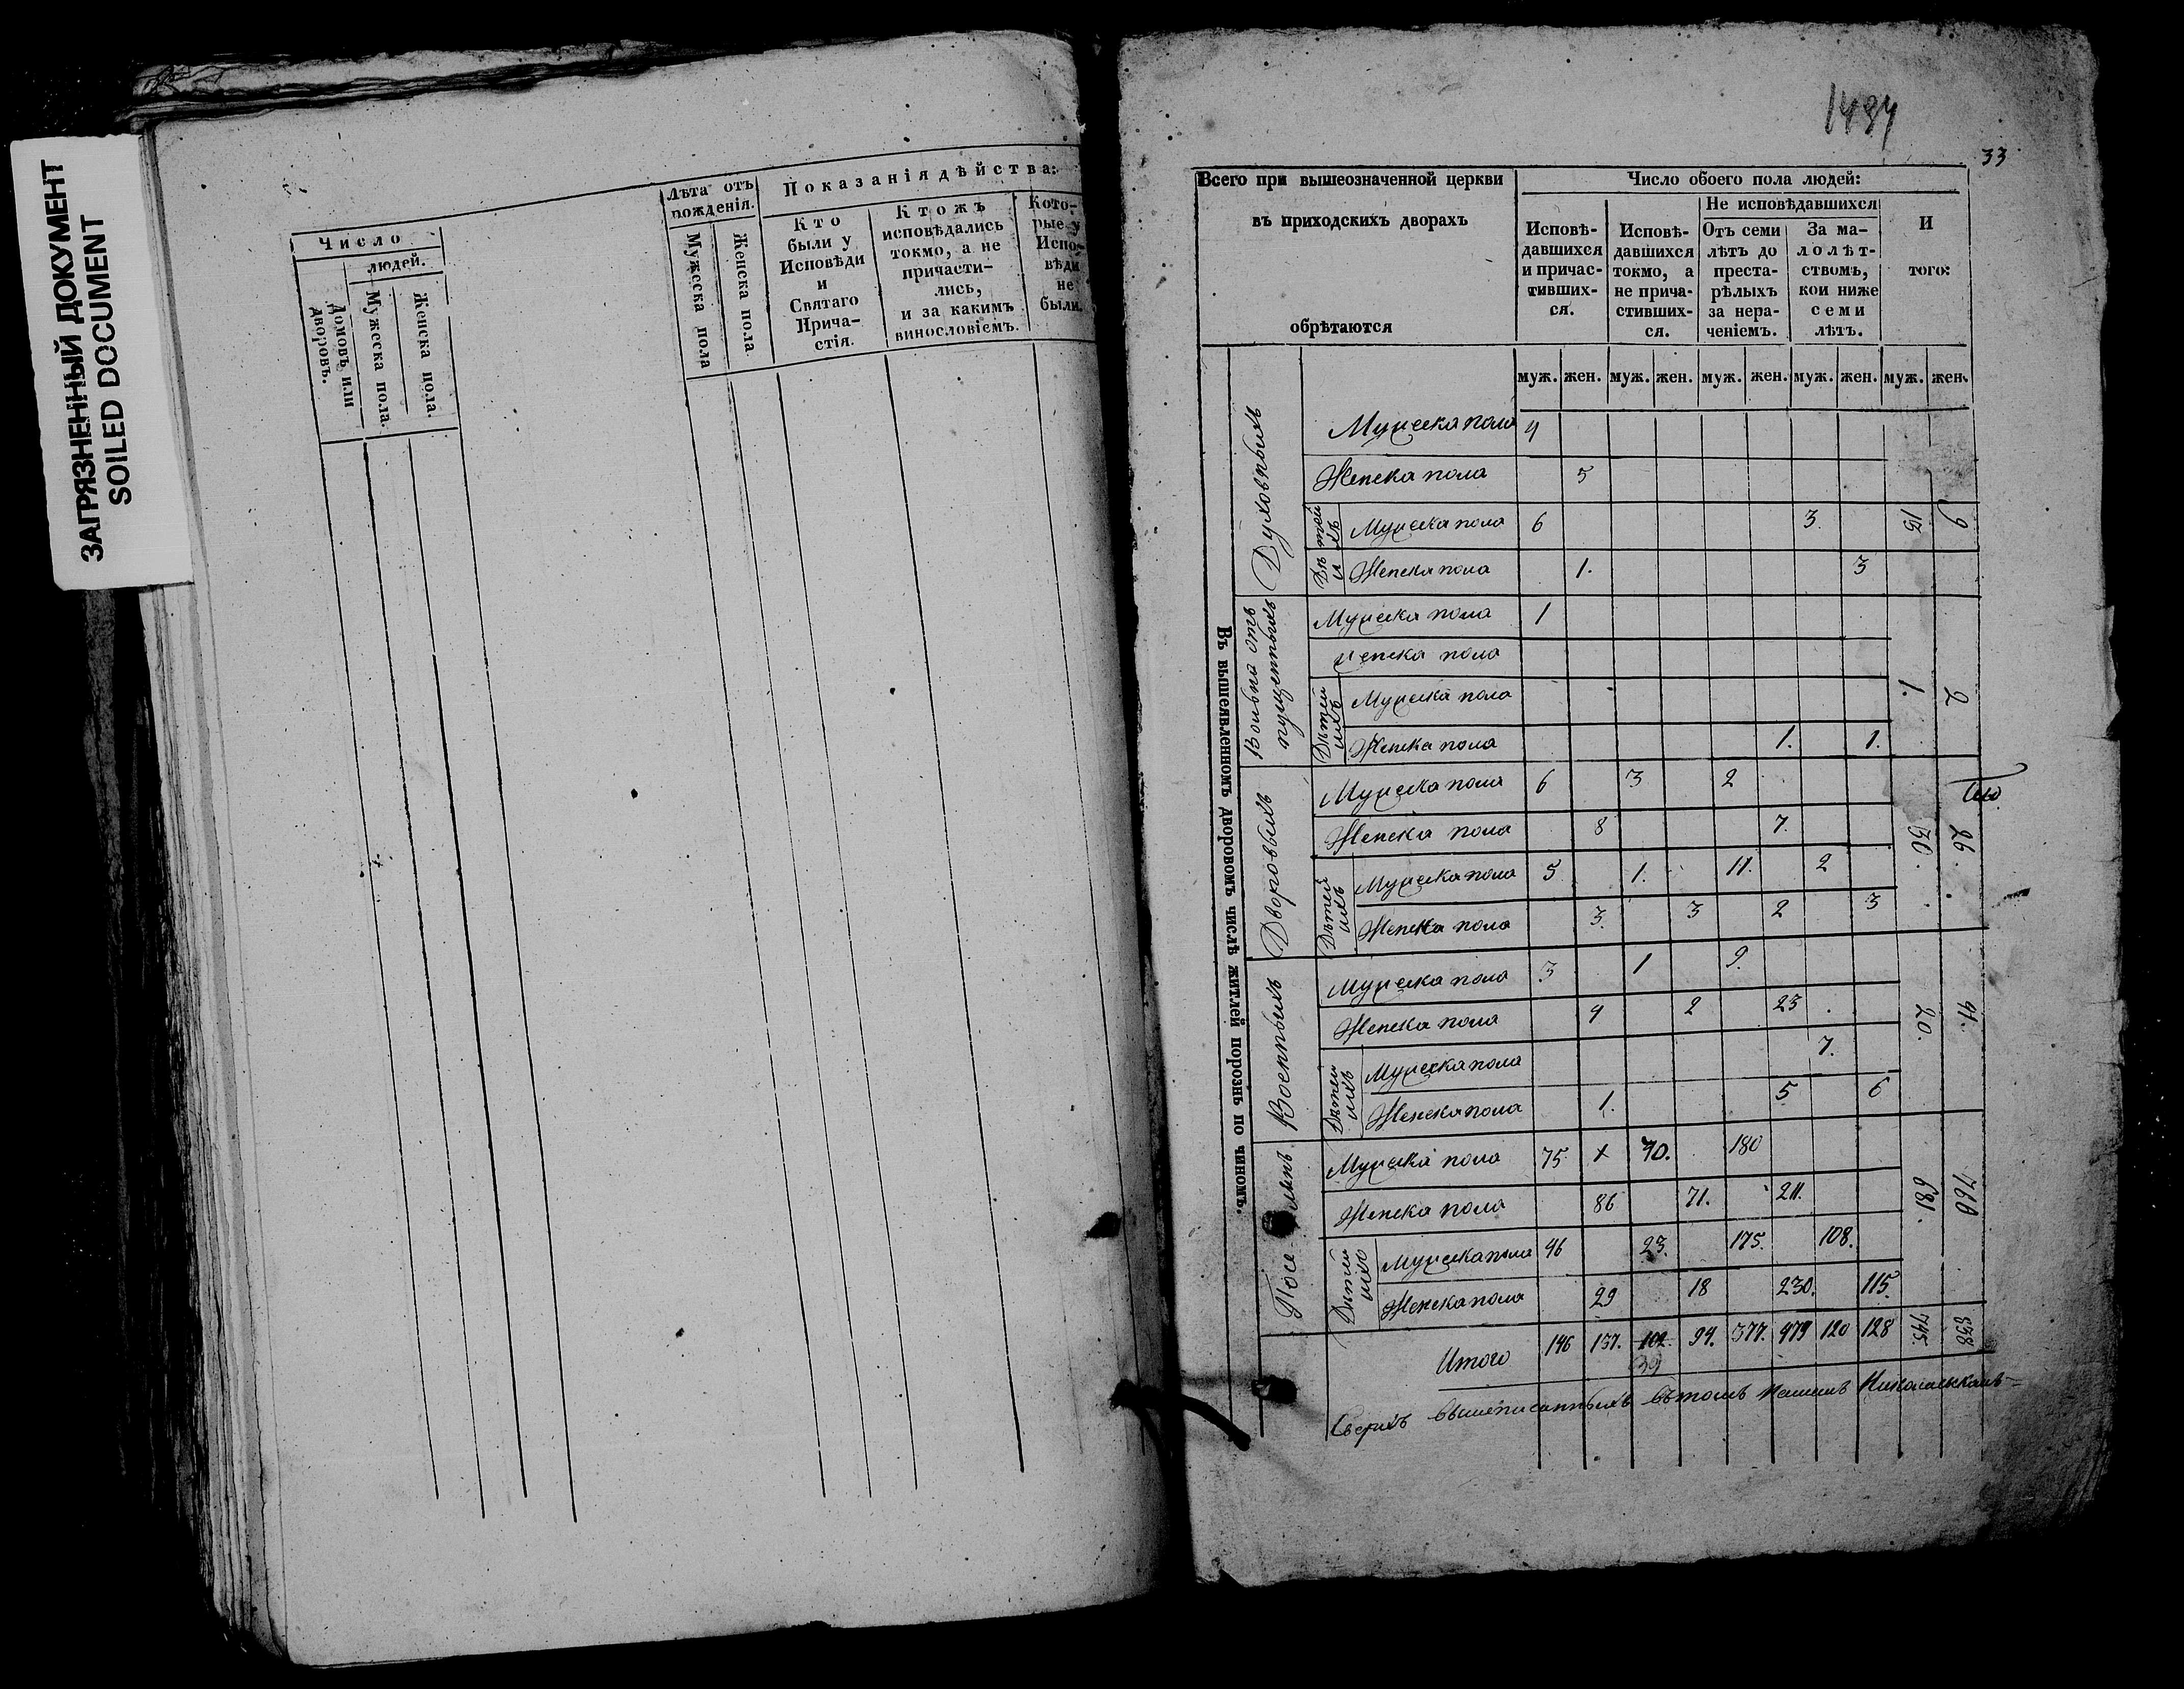 ЗАГРЯЗНЕННЫЙ ДОКУМЕНТ
SOILED DOCUMENT
Число
людей.
Домовъ или дворовъ.
Мужеска пола.
Женска пола.
Лѣта отъ рожденія.
Мужеска пола
Женска пола
Показанія дѣйства:
Кто были у Исповѣди и Святаго Причастія.
Ктожъ исповѣдались токмо, а не причастились, и за какимъ винословіемъ.
Которые у Исповѣди не были.
33
Всего при вышеозначенной церкви
въ приходскихъ дворахъ
обрѣтаются
Число обоего пола людей:
Исповѣ-
давшихся
и причас-
тивших-
ся.
Исповѣ-
давшихся
токмо, а
не прича-
стивших-
ся.
Не исповѣдавшихся
Отъ семи
лѣтъ до
преста-
рѣлыхъ
за нера-
ченіемъ.
За ма-
лолѣт-
ствомъ,
кои ниже
семи
лѣтъ.
И
того:
муж. жен. муж. жен. муж. жен. муж. жен. муж. жен.
Въ вышеявленномъ дворовомъ числѣ житлей порознь по чиномъ.
Духовныхъ
Мужеска пола 4
Женска пола 5
Дѣтей ихъ
Мужеска пола 6 3. 13 9
Женска пола 1. 3
Вольно отпущенныхъ
Мужеска пола 1
Женска пола
1. 2
Дѣтей ихъ
Мужеска пола
Женска пола 1. 1.
Дворовыхъ
Мужеска пола 6 3 2
Женска пола 8 7.
30. 26.
Дѣтей ихъ
Мужеска пола 5 1. 11. 2
Женска пола 3. 3 2 3
Военныхъ
Мужеска пола 3 1 9.
Женска пола 4 2 23
20. 41.
Дѣтей ихъ
Мужеска пола 7.
Женска пола 1. 5 6
Посе лянъ
Мужеска пола 75 x 70. 180
Женска пола 86 71. 211.
681. 760
Дѣтей ихъ
Мужеска пола 46 23. 175. 108.
Женска пола 29 18 230. 115.
Итого 146 137. 94. 377. 479 120 128 745. 838
Сверхъ вышеписанныхъ въ томъ